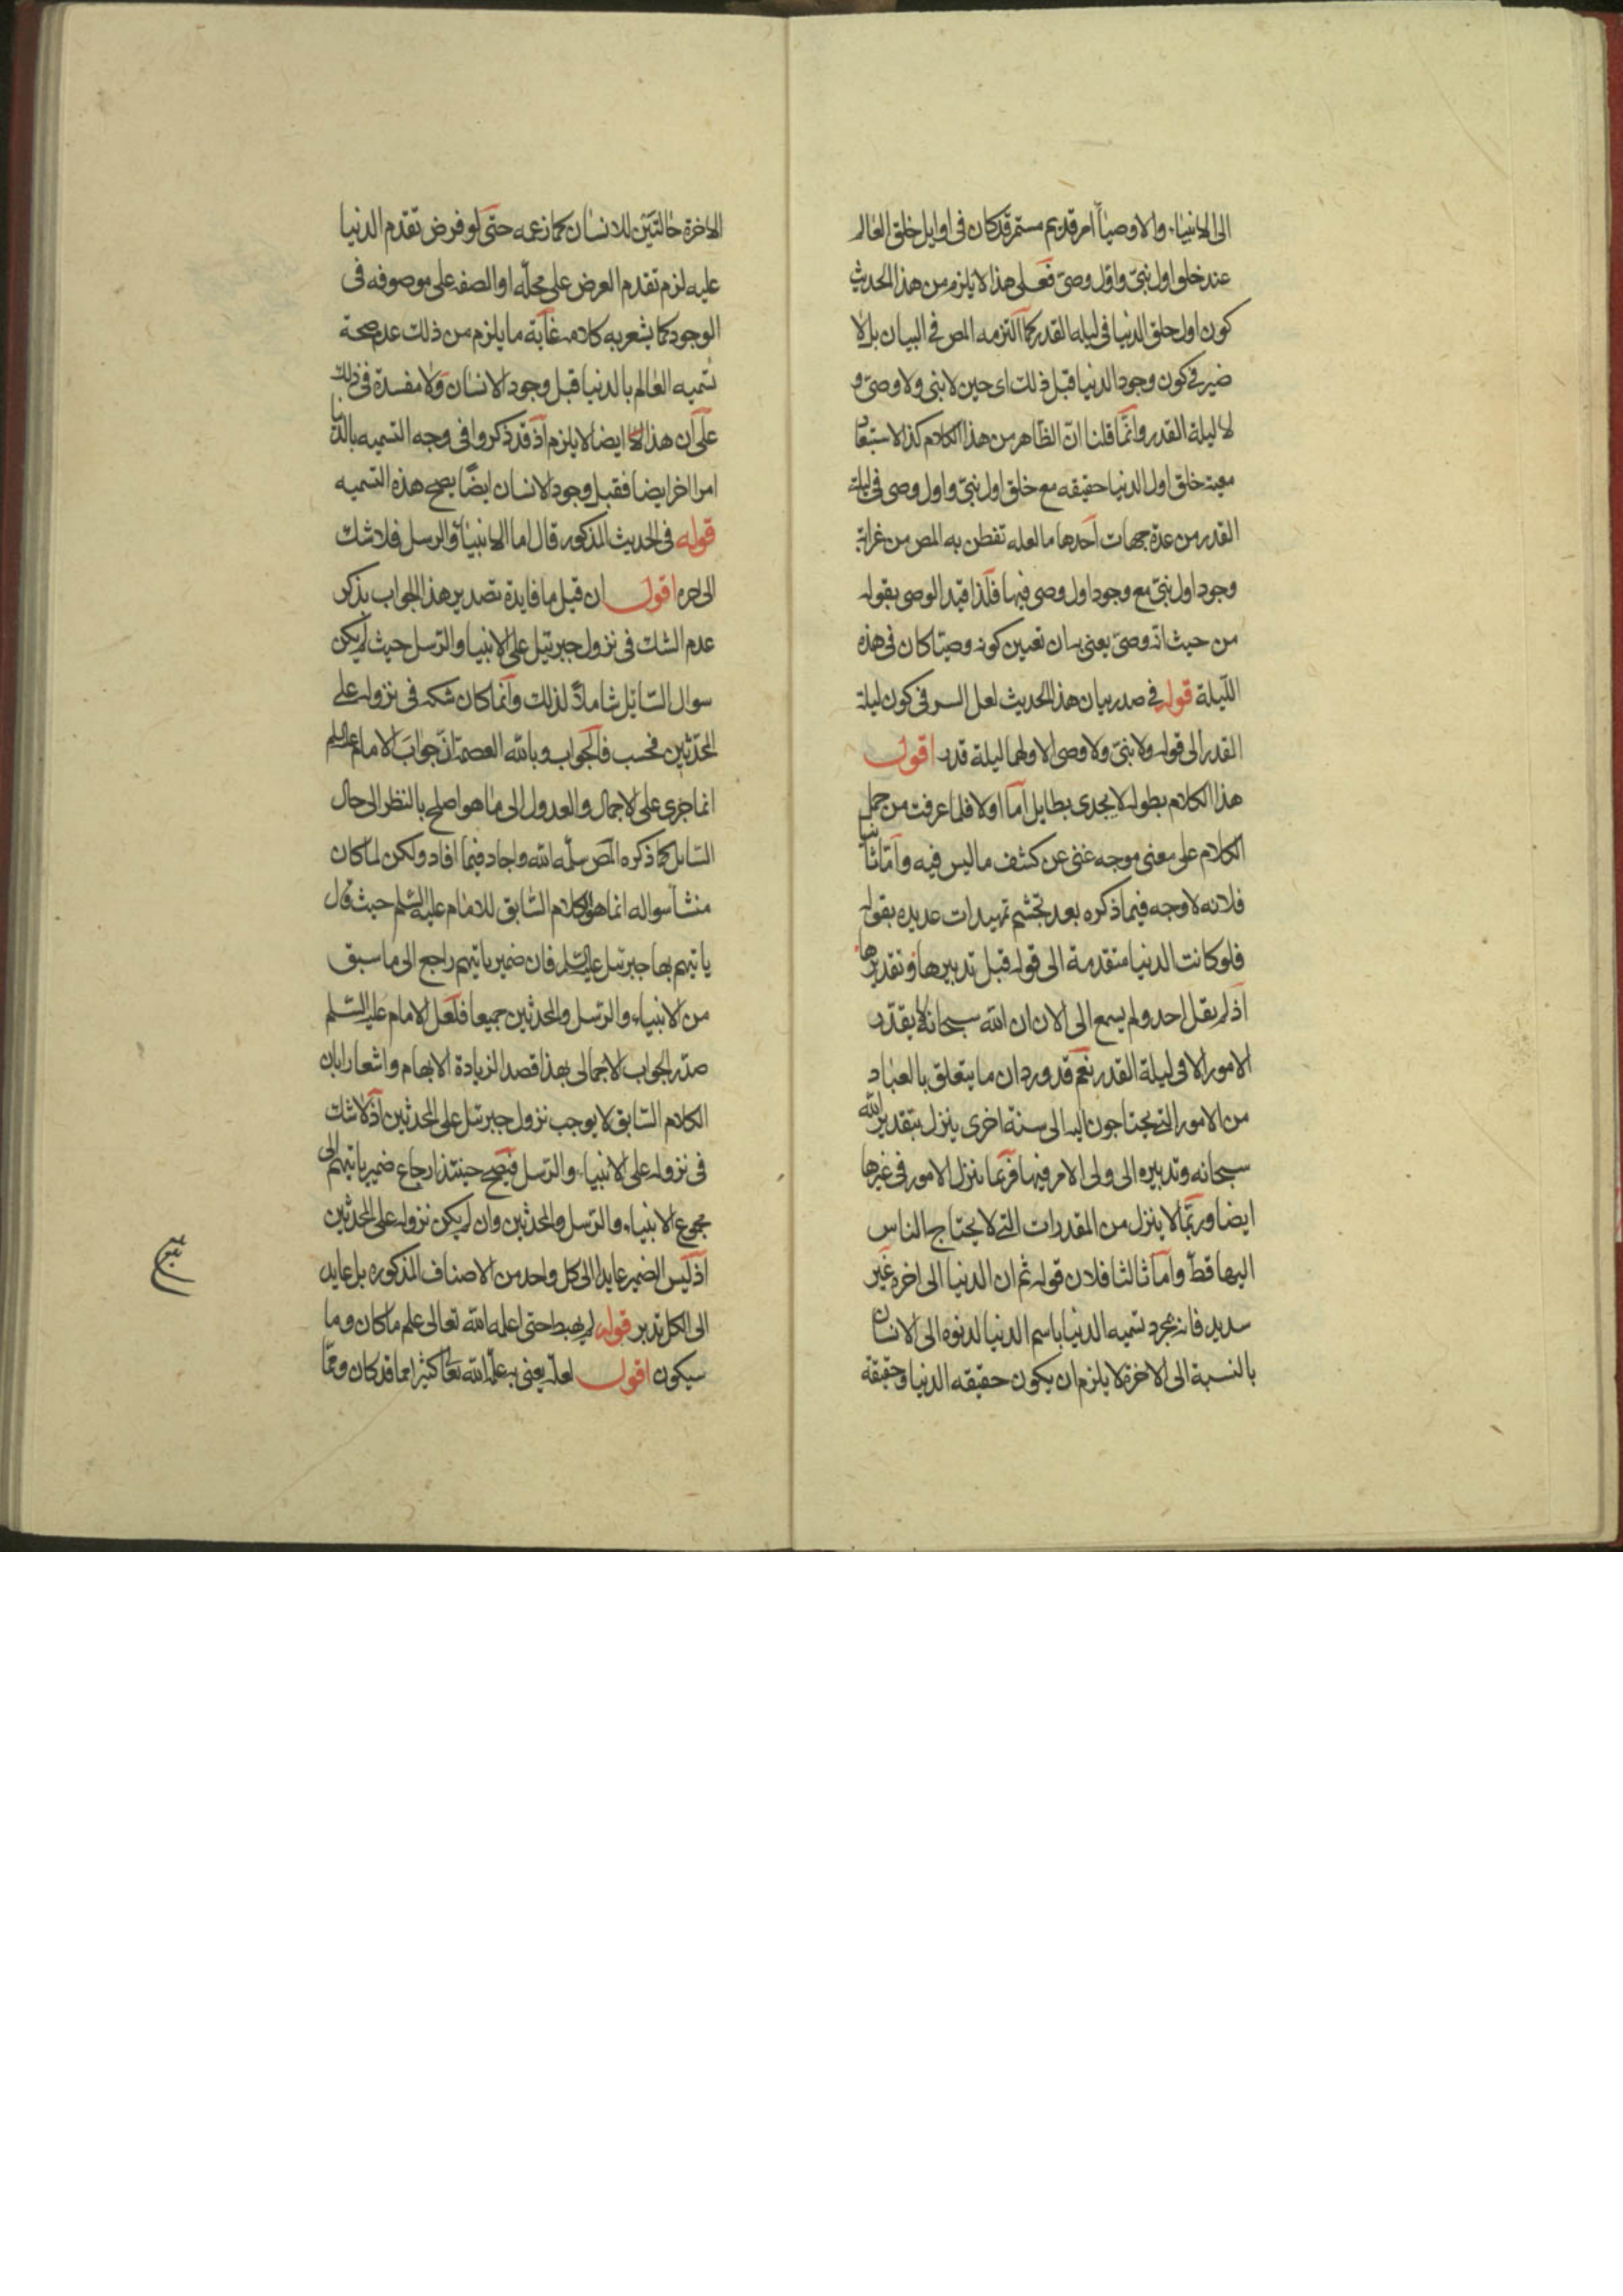 الى الانبياء والاوصياء امر قديم مستمر قد كان فى اوايل خلق العالم
عند خلق اول نبىّ واوّل وصىّ فعلى هذا لا يلزم من هذا الحديث
كون اول خلق الدنيا فى ليله القدر كما التزمه المص فى البيان بل لا
ضير فى كون وجود الدنيا قبل ذلك اى حين لا نبى ولا وصىّ و
لا ليلة القدر وانّما قلنا انّ الظاهر من هذا الكلام كذا لاستبعاد
معية خلق اول الدنيا حقيقه مع خلق اول نبىّ واول وصى فى ليلة
القدر من عدة جهات احدها ما لعله تفطن به المص من غرابة
وجود اول نبىّ مع وجود اول وصى فيها فلذا قيد الوصى بقوله
من حيث انه وصىّ يعنى بيان تعيين كونه وصيّا كان فى هذه
اللّيلة قوله فى صدر بيان هذا الحديث لعل السر فى كون ليلة
القدر الى قوله ولا نبىّ ولا وصى الا ولهما ليلة قدر اقول
هذا الكلام بطوله لا يجدى بطايل اما اولا فلما عرفت من حمل
الكلام على معنى موجه غنى عن كشف ما ليس فيه وامّا ثانيا
فلانه لا وجه فيما ذكره بعد تجشم تمهيدات عديده بقوله
فلو كانت الدنيا متقدمة الى قوله قبل تدبيرها وتقديرها
اذ لم يقل احد ولم يسمع الى الان ان الله سبحانه لا يقدّر
الامور الا فى ليلة القدر نعم قد ورد ان ما يتعلق بالعباد
من الامور التى يحتاجون اليه الى سنة اخرى ينزل بتقدير الله
سبحانه وتدبيره الى ولى الامر فيها فربما تنزل الامور فى غيرها
ايضا وربّما لا ينزل من المقدرات التى لا يحتاج الناس
اليها قطّ وامّا ثالثا فلان قوله ثم ان الدنيا الى اخره غير
سديد فانه بمجرد تسميه الدنيا باسم الدنيا لدنوه الى الانسان
بالنسبة الى الاخرة لا يلزم ان يكون حقيقه الدنيا وحقيقة
الاخرة حالتين للانسان كما زعمه حتى لو فرض تقدم الدنيا
عليه لزم تقدم العرض على محلّه او الصفه على موصوفه فى
الوجود كما يشعر به كلامه غاية ما يلزم من ذلك عدم صحة
تسميه العالم بالدنيا قبل وجود الانسان ولا مفسدة فى ذلك
على ان هذا ايضا لا يلزم اذ قد ذكروا فى وجه التسميه بالدنيا
امرا اخر ايضا فقبل وجود الانسان ايضا يصح هذه التسميه
قوله فى الحديث المذكور قال اما الانبياء والرسل فلا شك
الى اخره اقول ان قيل ما فايدة تصدير هذا الجواب بذكر
عدم الشك فى نزول جبرئيل على الانبيا والرسل حيث لم يكن
سوال السّايل شاملا لذلك وانّما كان شكه فى نزوله على
المحدّثين فحسب فالجواب وبالله العصمة انّ جواب الامام عليه السلم
انما جرى على الاجمال والعدول الى ما هو اصلح بالنظر الى حال
السّايل كما ذكره المص سلّمه الله واجاد فيما افاد ولكن لما كان
منشا سواله انما هو الكلام السّابق للامام عليه السّلم حيث قال
ياتيهم بها جبرئيل عليه السّلم فان ضمير ياتيهم راجع الى ما سبق
من الانبياء والرّسل والمحدّثين جميعا فلعل الامام عليه السّلم
صدّر الجواب الاجمالى بهذا قصدا لزيادة الابهام واشعارا بان
الكلام السّابق لا يوجب نزول جبرئيل على المحدّثين اذ لا شك
فى نزوله على الانبياء والرّسل فيصح حينئذ ارجاع ضمير ياتيهم الى
مجموع الانبياء والرّسل والمحدّثين وان لم يكن نزوله على المحدّثين
اذ ليس الضمير عايدا الى كل واحد من الاصناف المذكوره بل عايد
الى الكل تدبر قوله لم يهبط حتى اعلمه الله تعالى علم ما كان وما
سيكون اقول لعله يعنى به علّمه الله تعا كثيرا مما قد كان وممّا